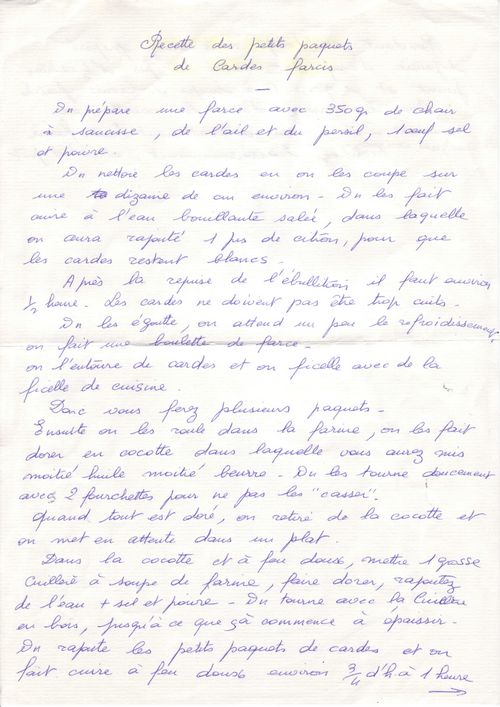 Recette des petits paquets
de Cardes farcis
On prépare une farce avec 350gr de chair
à saucisse, de l'ail et du persil, 1 oeuf sel
et poivre.
On nettoie les cardes en on les coupe sur
une dizaine de cm environ - On les fait
cuire à l'eau bouillante salée, dans laquelle
on aura rajouté 1 jus de citron, pour que
les cardes restent blancs.
Après la reprise de l'ébullition il faut environ
1/2 heure - Les cardes ne doivent pas être trop cuits -
On les égoutte, on attend un peu le refroidissement,
on fait une boulette de farce -
on l'entoure de cardes et on ficelle avec de la
ficelle de cuisine.
Donc vous ferez plusieurs paquets -
Ensuite on les roule dans la farine, on les fait
dorer en cocotte dans laquelle vous aurez mis
moitié huile moitié beurre - On les tourne doucement
avec 2 fourchettes pour ne pas les "casser".
Quand tout est doré, on retire de la cocotte et
on met en attente dans un plat.
Dans la cocotte et à feu doux, mettre 1 grosse
cuillère à soupe de farine, faire dorer, rajoutez
de l'eau + sel et poivre - On tourne avec la Cuillère
en bois, jusqu'à ce que çà commence à épaissir -
On rajoute les petits paquets de cardes et on
fait cuire à feu doux environ 3/4 d'h. à 1 heure
→